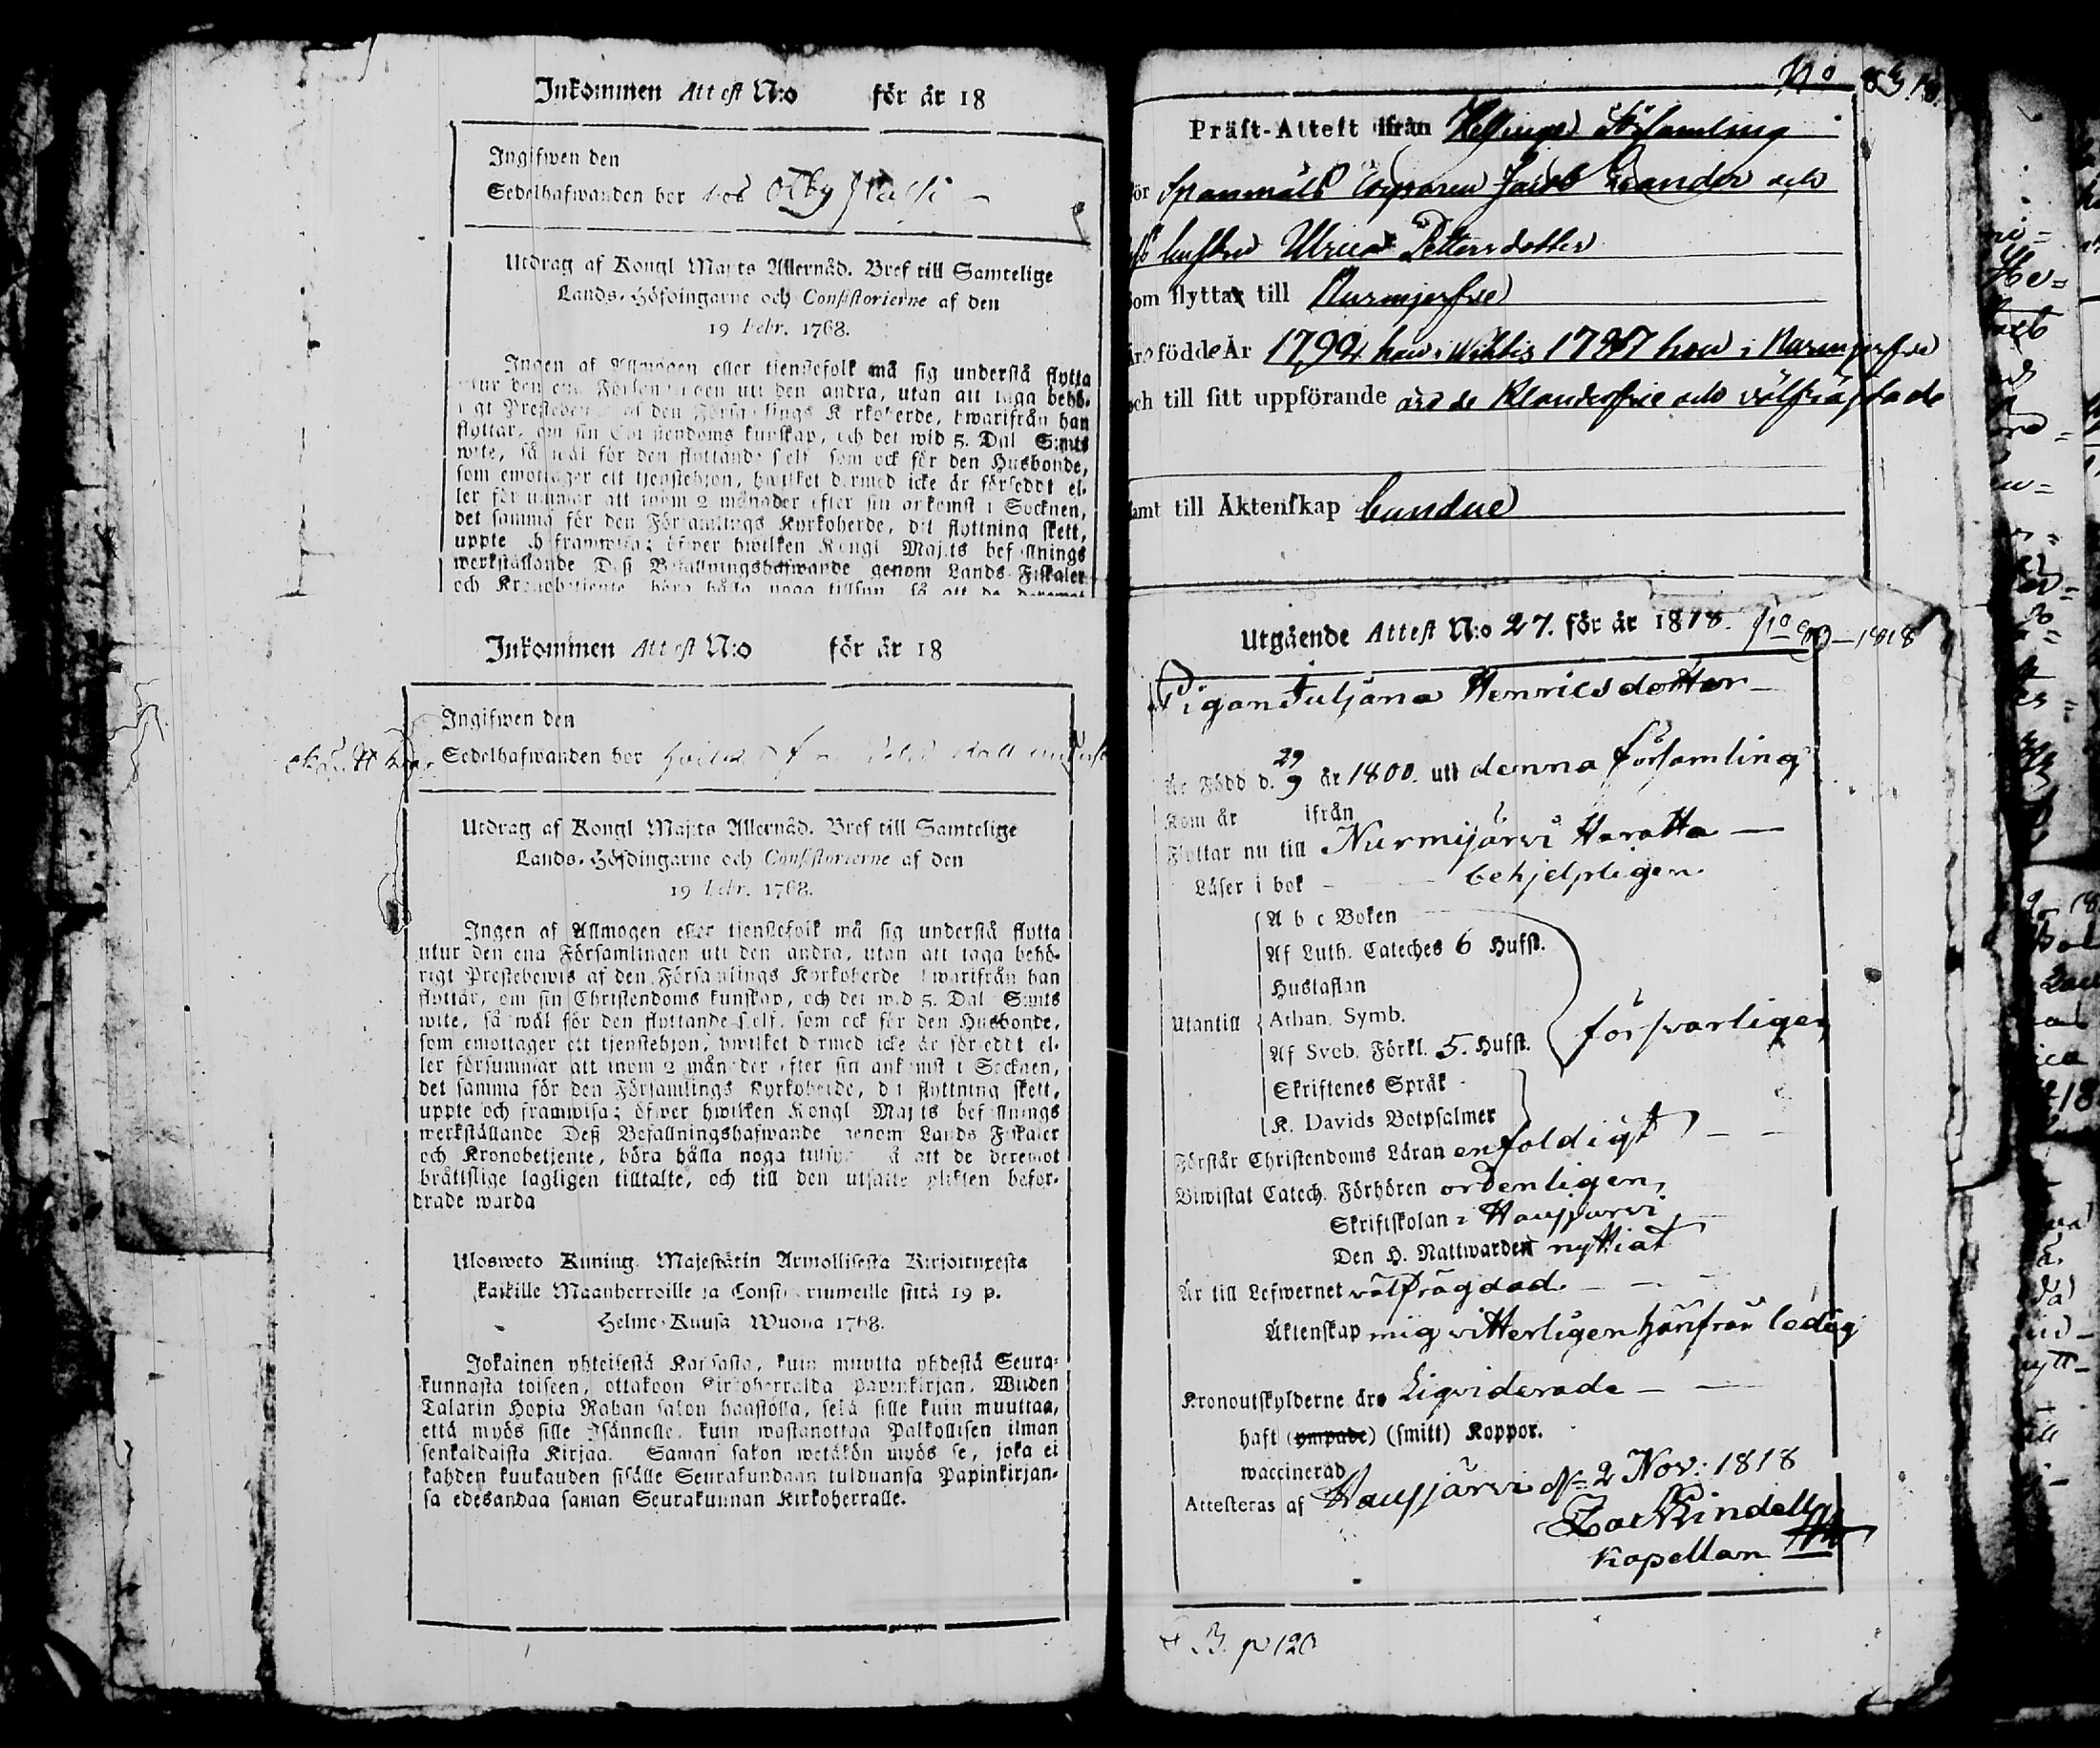 Inkommen Attest N:o för år 18
Ingifwen den
Sedelhafwanden bor hos
Utdrag af Kongl Maj:ts Allernåd. Bref till Samtelige
Lands-Höfdingarne och Consistorierne af den
19 Febr. 1768.
Ingen af Allmogen eller tienstefolk må sig understå flytta
utur den ena Församlingen utt den andra, utan att taga behö-
rigt Prestebewis af den Församlings Kyrkoherde, hwarifrån han
flyttar, om sin Christendoms kunskap, och det wid 5. Dal S:mts
wite, så wäl för den flyttande self som ock för den Husbonde,
som emottager ett tjenstehjon, hwilket dermed icke är förseddt el-
ler försummar att inom 2 månader efter sin ankomst i Socknen,
det samma för den Församlings Kyrkoherde, dit flyttning skett,
uppte och framwisa; öfwer hwilken Kongl Maj:ts befallnings
werkställande Deß Befallningshafwande genom Lands Fiskaler
och Kronobetiente, böra hålla noga tillsyn, så att de deremot
Inkommen Attest N:o för år 18
Ingifwen den
Sedelhafwanden bor
Utdrag af Kongl Maj:ts Allernåd. Bref till Samtelige
Lands-Höfdingarne och Consistorierne af den
19 Febr. 1768.
Ingen af Allmogen eller tienstefolk må sig understå flytta
utur den ena Församlingen utt den andra, utan att taga behö-
rigt Prestebewis af den Församlings Kyrkoherde hwarifrån han
flyttar, om sin Christendoms kunskap, och det wid 5. Dal S:mts
wite, så wäl för den flyttande self, som ock för den Husbonde,
som emottager ett tjenstehjon, hwilket dermed icke är försedt el-
ler försummar att inom 2 månader efter sin ankomst i Socknen,
det samma för den Församlings Kyrkoherde, dit flyttning skett,
uppte och framwisa; öfwer hwilken Kongl Maj:ts befallnings
werkställande Deß Befallningshafwande genom Lands Fiskaler
och Kronobetiente, böra hålla noga tillsyn så att de deremot
bråttslige lagligen tilltalte, och till den utsatte plikten befor-
drade warda
Ulosweto Kuning. Majestätin Armollisesta Kirjoituxesta
kaikille Maanherroille ja Consistoriumeille siitä 19 p.
Helme-Kuusa Wuona 1768.
Jokainen yhteisestä Kansasta, kuin muutta yhdestä Seura-
kunnasta toiseen, ottakoon Kirkoherralda Papinkirjan, Wiiden
Talarin Hopia Rahan sakon haastolla, sekä sille kuin muuttaa,
että myös sille Isännelle, kuin wastanottaa Palkollisen ilman
senkaldaista Kirjaa. Saman sakon wetäkön myös se, joka ei
kahden kuukauden sisälle Seurakundaan tulduansa Papinkirjan-
sa edesandaa saman Seurakunnan Kirkoherralle.
N:o 83
Präst-Attest ifrån Helsinge Församling
för Spanmåls Jacob och
hustru Ulrica Pettersdotter
Som flyttar till Nurmjerfvi
Äro födde År 1794 han i Wichtis 1787 hon i Nurmjerfvi
och till sitt uppförande äro de Klanderfrie och välfrägdade
samt till Äktenskap bundne
Utgående Attest N:o 27. för år 1818. N:o 83 – 1818
Pigan Juljana Henricsdotter
Är Född d. 29/9 år 1800. utt denna församling
Kom år ifrån
Flyttar nu till Nurmijärvi
Läser i bok behjelpligen
Utantill
A b c Boken
Af Luth. Cateches 6 Hufst.
Hustaflan
Athan. Symb.
Af Sveb. Förkl. 5. Hufst. försvarligen
Skriftenes Språk
K. Davids Botpsalmer
Förstår Christendoms Läran enfoldigt
Biwistat Catech. Förhören ordenligen,
Skriftskolan i Hausjärvi
Den H. Nattwarden nyttiat
Är till Lefwernet välfrägdad
Äktenskap mig vitterligen härifrån ledig
Kronoutskylderne äro Liqviderade
haft (ympade) (smitt) Koppor.
waccinerad
Attesteras af Hausjärvi d. 2 Nov: 1818
Kapellan
B. p 120